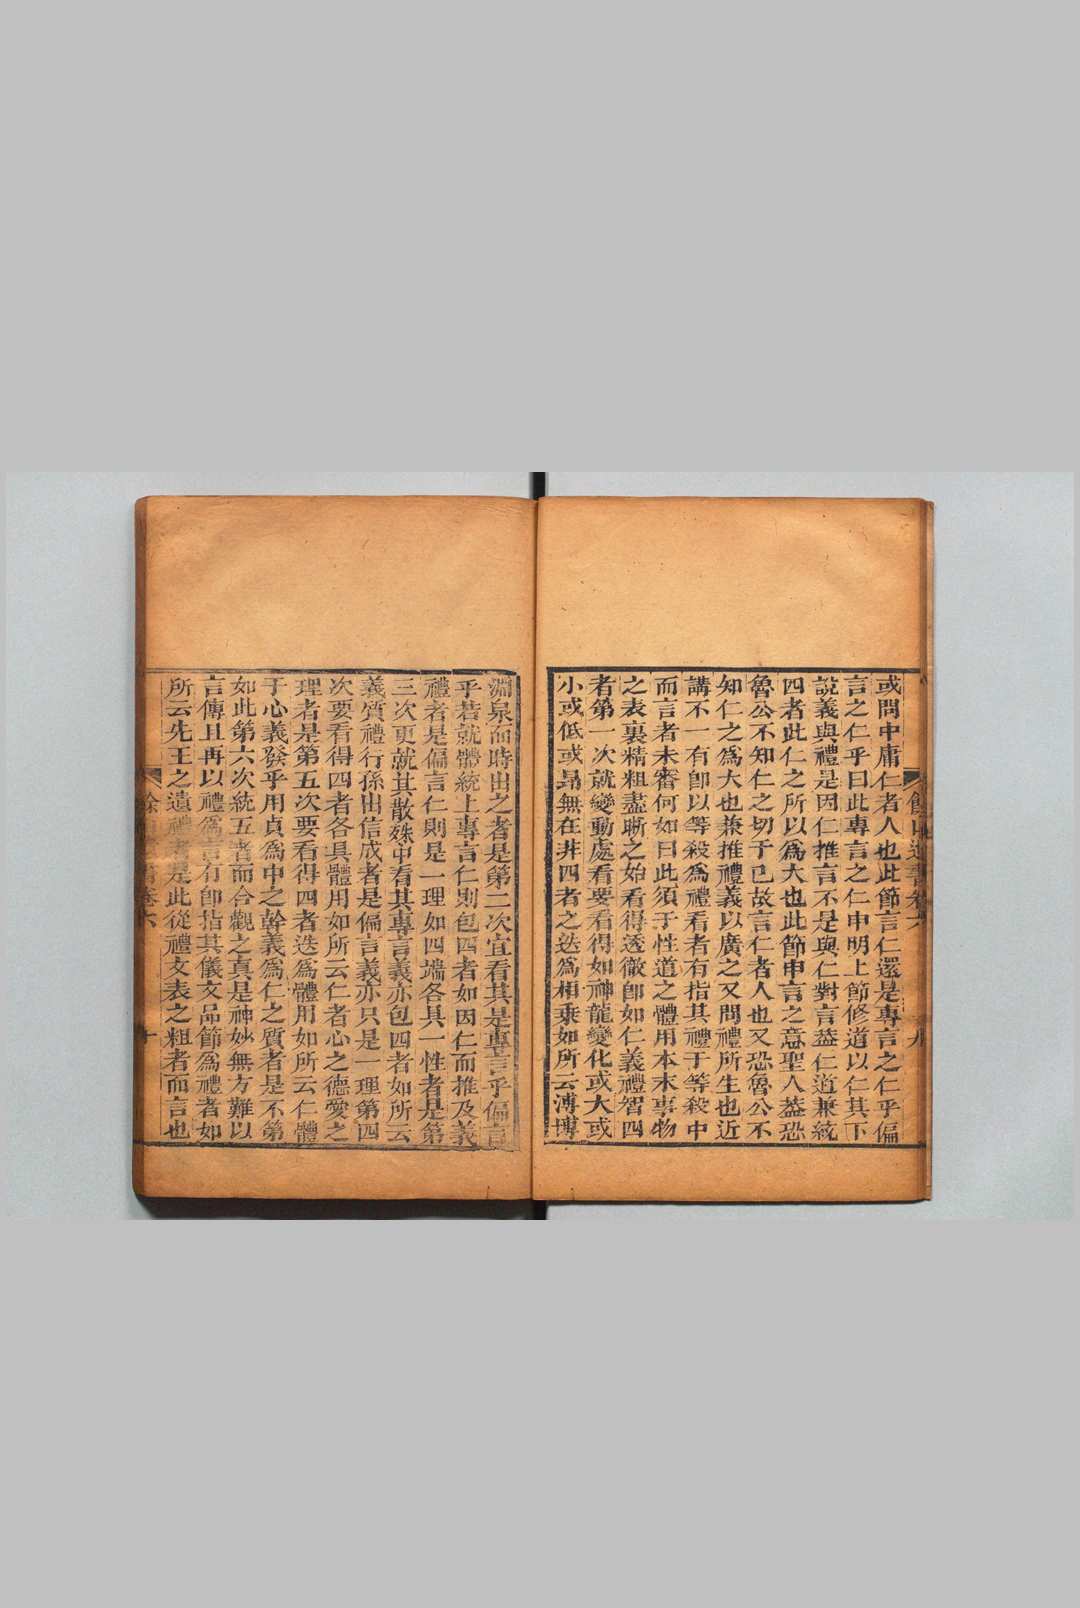 或問中庸仁者人也此節言仁還是專言之仁乎偏
言之仁乎曰此專言之仁申明上節修道以仁其下
說義與禮是因仁推言不是與仁對言葢仁道兼統
四者此仁之所以為大也此節申言之意聖人葢恐
魯公不知仁之切于己故言仁者人也又恐魯公不
知仁之為大也兼推禮義以廣之又問禮所生也近
講不一有卽以等殺為禮看者有指其禮于等殺中
而言者未審何如曰此須于性道之體用本末事物
之表裏精粗盡晰之始看得透徹卽如仁義禮智四
者第一次就變動處看要看得如神龍變化或大或
小或低或昻無在非四者之迭為相乗如所云溥博
淵泉而時出之者是第二次宜看其是專言乎偏言
乎若就體統上專言仁則包四者如因仁而推及義
禮者是偏言仁則是一理如四端各具一性者是第
三次更就其散殊中看其專言義亦包四者如所云
義質禮行孫出信成者是偏言義亦只是一理第四
次要看得四者各具體用如所云仁者心之德愛之
理者是第五次要看得四者迭為體用如所云仁體
于心義發乎用貞為中之幹義為仁之質者是不第
如此第六次統五者而合觀之真是神妙無方難以
言傳且再以禮為言有卽指其儀文品節為禮者如
所云先王之遺禮者是此從禮文表之粗者而言也